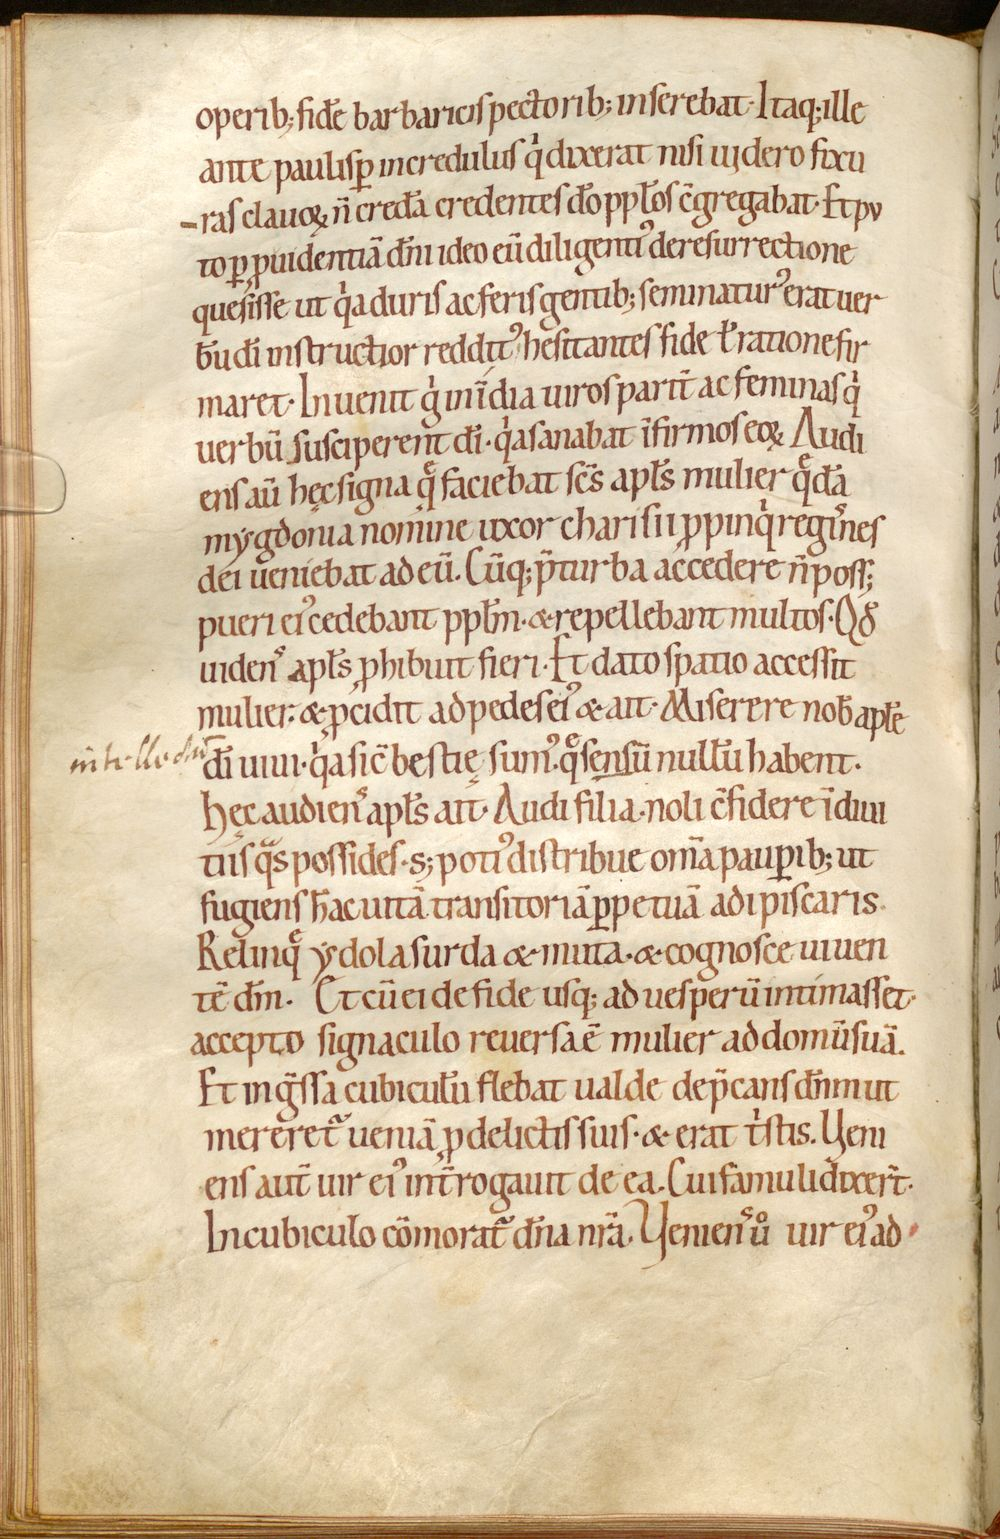 operib; fidē barbaricis pectorib; inserebat· Itaq; ille
ante paulisꝑ incredulus q̇ dixerat nisi uidero fixu
ras clauoꝝ n̄ credā credentes dō ppl̄os c̄gregabat· Et pu
to ꝑ ꝓuidentiā dn̄i ideo eū diligentiꝰ de resurrectione
quesisse ut q̇a duris ac feris gentib; seminaturꝰ erat uer
bū dī instructior redditꝰ hesitantes fide ł ratione fir
maret· Inuenit g̊ in īdia uiros parit̄ ac feminas q̇
uerbū susciperent dī· q̇a sanabat īfirmos eoꝝ Audi
ens aū hęc signa q̄ faciebat sc̄s apl̄s mulier q̄dā
mygdonia nomine uxor charisii ꝓpinq̇ regis̉ nes
dei ueniebat ad eū. Cūq; p̄ turba accedere n̄ poss;
pueri eiꝰ cedebant ppl̄m· & repellebant multos· Qđ
uidens̉ apl̄s ꝓhibuit fieri· Et dato spatio accessit
mulier· & ꝓcidit ad pedes eiꝰ & ait· Miserere nob̄ apl̄e
intellectū
dī uiui· q̇a sic̄ bestię sumꝰ· q̄ sensū nullū habent·
Hęc audiens̉ apl̄s ait· Audi filia· noli c̄fidere ī diui
tiis q̄s possides· s; potiꝰ distribue om̄ia pauꝑib; ut
fugiens hāc uitā transitoriā ꝑpetuā adipiscaris·
Relinq̄ ydola surda & muta· & cognosce uiuen
tē dm̄· Et cū ei de fide usq; ad uesperū intimasset·
accepto signaculo reuersa ē mulier ad domū suā.
Et ing̃ssa cubiculū flebat ualde dep̄cans dn̄m ut
mereretᷓ ueniā ꝓ delictis suis· & erat tristis. Ueni
ens aut̄ uir eiꝰ int̄rogauit de ea. Cui famuli dixer̄t·
In cubiculo cōmoratᷓ dn̄a nr̄a. Ueniens̉ ů uir eiꝰ ad